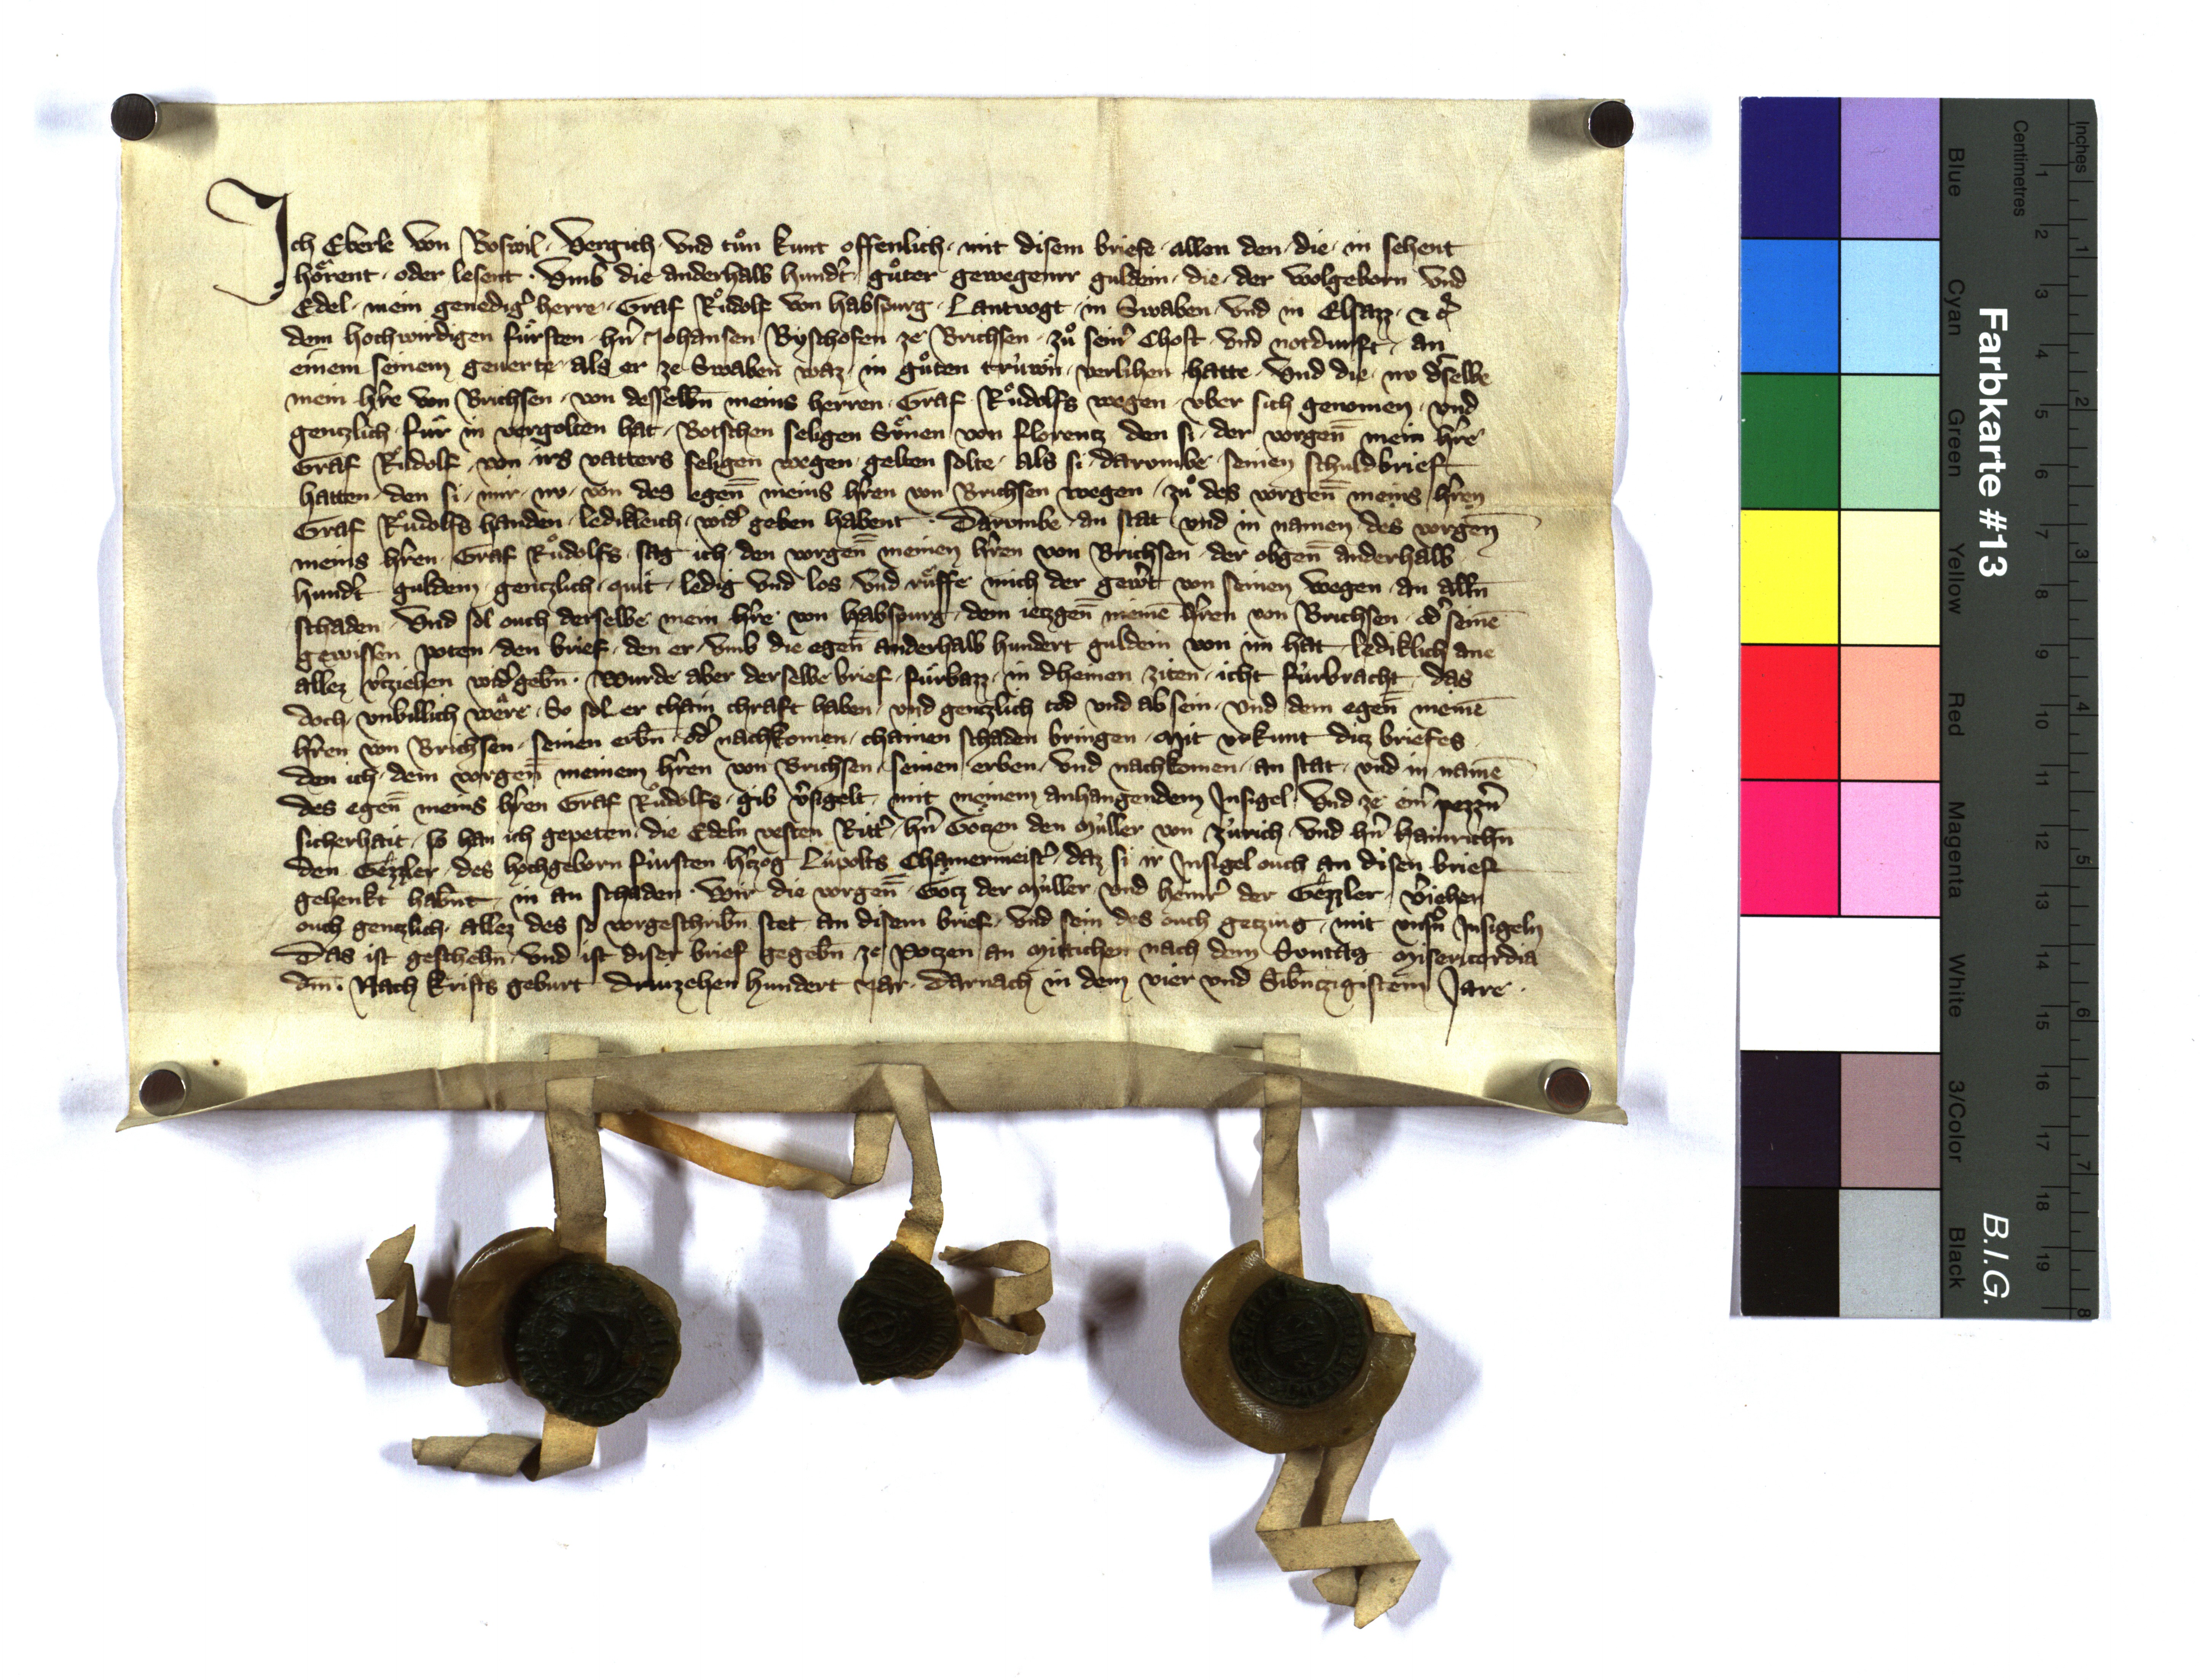 Ich Eberle von Boswil · Vergich · vnd tůn kunt offenlich · mit disem briefe · allen den · die · in sehent
hôrent · oder lesent · Vmb die anderhalb hundt̾ · gůter gewegenrr guldein · die · der wolgeborn vnd
Edel · mein genedig̾ herre · Graf Růdolf von Habspurg · Lantvogt · in Swaben · vnd in Elsazz · &c̾
dem hochwirdigen fürsten · hn̾ Johansen Byschofen ze Brichsen · zů sein̾ Chost · vnd notdurft · an
einem seinem geuerte als er ze Swaben waz · in gůten trüwôn · verlihen hatte · Vnd die · nv d̾selbe
mein hr̾e von Brichsen · von desselbn̄ meins herren · Graf Růdolfs wegen · vber sich genomen · vnd
gentzlich für in vergolten hat · Botschen seligen Sünen von Florentz den si · der vorgen̄ mein hr̾e
Graf Růdolf · von irs vatters seligen wegen · gelten solte · als si · darvmbe · seinen schuldbrief
hatten · den si · mir · nv · von des egen̄ meins hr̾en von Brichsen wegen / zů des vorgen̄ meins hr̾en
Graf Růdolfs handen · ledikleich · wid̾ geben habent · Darvmbe · an stat vnd in namen des vorgen̄
meins hr̾en · Graf Růdolfs · sag ich · den vorgen̄ meinen hr̾en von Brichsen · der obgen̄ anderhalb
hundt̾ guldein · gentzlich · quit · ledig vnd los · vnd rüffe mich der gewt̾ von seinen wegen · an alln̄
schaden · Vnd sol ouch derselbe mein hr̾e von Habspurg · dem ietzgen̄ meinē hr̾en von Brichsen · od̾ seinē
gewissen poten · den brief · den er · vmb die egen̄ anderhalb hundert guldein von im hat · lediklich ane
allez v̾ziehen wid̾gebn̄ · Wurde aber derselbe brief · fürbazz · in dheinen ziten · icht fürbracht · das
doch · vnbillich wêre · So sol er chain chraft haben · vnd gentzlich tod vnd ab sein · Vnd dem egen̄ meinē
hr̾en von Brichsen · seinen erbn̄ · od̾ nachkomen · chainen schaden bringen · Mit vrkunt ditz briefes
den ich · dem vorgen̄ meinem hr̾en von Brichsen · seinen erben · vnd nachkomen · an stat · vnd in namē
des egen̄ meins hr̾en Graf Růdolfs · gib v̾sigelt · mit meinem anhangendem Insigel · Vnd ze ein̾ pezzn̾
sicherhait · so han ich gepeten · die Edeln vesten Ritt̾ · hn̾ Gôtzen den Müller von Zürich · vnd hn̾ Hainrichn̄
den Gêzzler · des hochgeborn fürsten h̾tzog Lüpolts Chamermeist̾ · daz si ir Insigel ouch an disen brief
gehenkt habn̄t · in an schaden · Wir die vorgen̄ · Gôtz der Müller · vnd Heinr̾ der Gêzzler · v̾iehen
ouch gentzlich · allez des so vorgeschribn̄ stet an disem brief · Vnd sein des ouch getzüg · mit vnsn̾ Insigeln
Das ist geschehn̄ · vnd ist diser brief gegebn̄ · ze Potzen an Mittichen nach dem Sontag Misericordia
dm̄ · Nach Krists gebürt Drüizehen hundert Jar · Darnach in dem vier vnd Sibn̄tzigistem Jare ·
Farbkarte #13
B.I.G.
Centimetres
Inches
Blue
Cyan
Green
Yellow
Red
Magenta
White
3/Color
Black
1 2 3 4 5 6 7 8 9 10 11 12 13 14 15 16 17 18 19
1 2 3 4 5 6 7 8